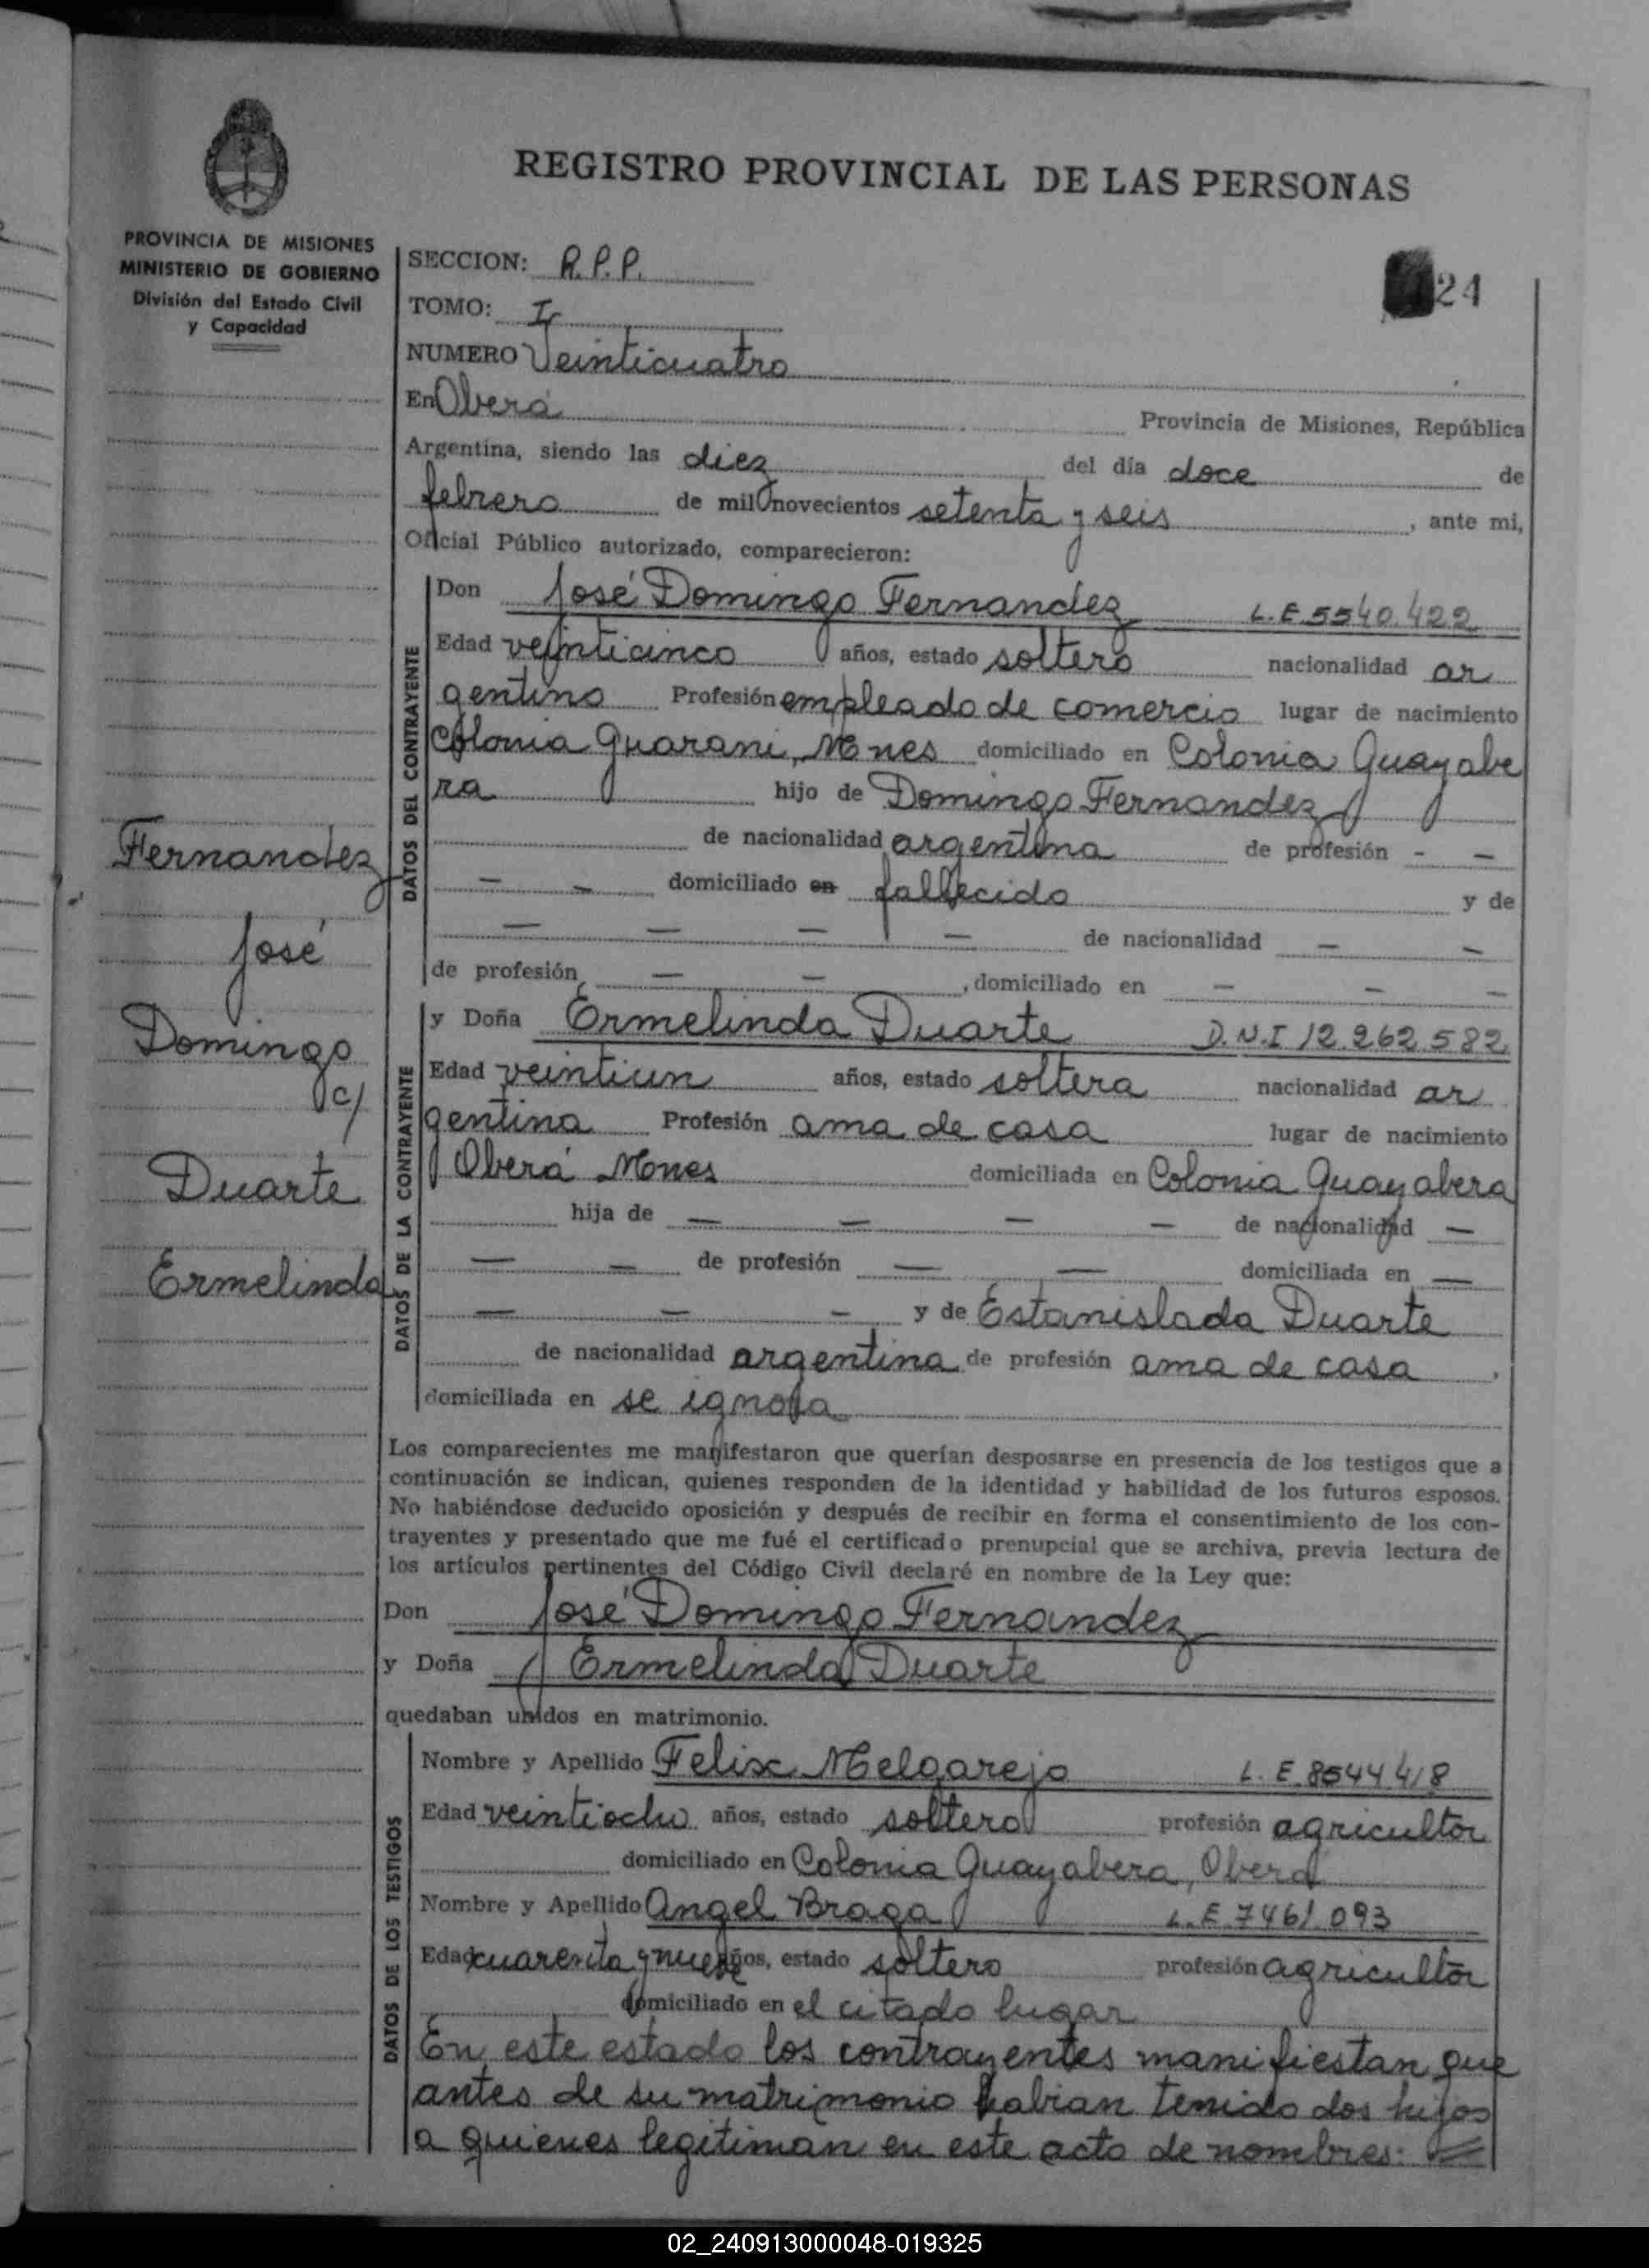 REGISTRO PROVINCIAL DE LAS PERSONAS
PROVINCIA DE MISIONES
MINISTERIO DE GOBIERNO
División del Estado Civil
y Capacidad
SECCION: R.P.P.
24
TOMO: I
NUMERO Veinticuatro
En Oberá Provincia de Misiones, República
Argentina, siendo las diez del día doce de
febrero de mil novecientos setenta y seis, ante mi,
Oficial Público autorizado, comparecieron:
DATOS DEL CONTRAYENTE
Don José Domingo Fernandez L.E. 5540.422
Edad veinticinco años, estado soltero nacionalidad ar
gentino Profesión empleado de comercio lugar de nacimiento
Colonia Guarani, Mnes domiciliado en Colonia Guayabe
ra hijo de Domingo Fernandez
de nacionalidad argentina de profesión - -
- - domiciliado en fallecido y de
- - - - de nacionalidad - -
de profesión - - , domiciliado en - - -
Fernandez
José
Domingo
c/
Duarte
Ermelinda
DATOS DE LA CONTRAYENTE
y Doña Ermelinda Duarte D.N.I 12.262.582
Edad veintiun años, estado soltera nacionalidad ar
gentina Profesión ama de casa lugar de nacimiento
Oberá Mones domiciliada en Colonia Guayabera
hija de - - - - de nacionalidad -
- - de profesión - - domiciliada en -
- - - y de Estanislada Duarte
de nacionalidad argentina de profesión ama de casa ,
domiciliada en se ignora
Los comparecientes me manifestaron que querían desposarse en presencia de los testigos que a
continuación se indican, quienes responden de la identidad y habilidad de los futuros esposos.
No habiéndose deducido oposición y después de recibir en forma el consentimiento de los con-
trayentes y presentado que me fué el certificado prenupcial que se archiva, previa lectura de
los artículos pertinentes del Código Civil declaré en nombre de la Ley que:
Don José Domingo Fernandez
y Doña Ermelinda Duarte
quedaban unidos en matrimonio.
DATOS DE LOS TESTIGOS
Nombre y Apellido Felix Melgarejo L.E. 8544418
Edad veintiocho años, estado soltero profesión agricultor
domiciliado en Colonia Guayabera, Oberá
Nombre y Apellido Angel Braga L.E 7461.093
Edad cuarenta y nueve años, estado soltero profesión agricultor
domiciliado en el citado lugar
En este estado los contrayentes manifiestan que
antes de su matrimonio habian tenido dos hijos
a quienes legitiman en este acto de nombres:
02_240913000048-019325